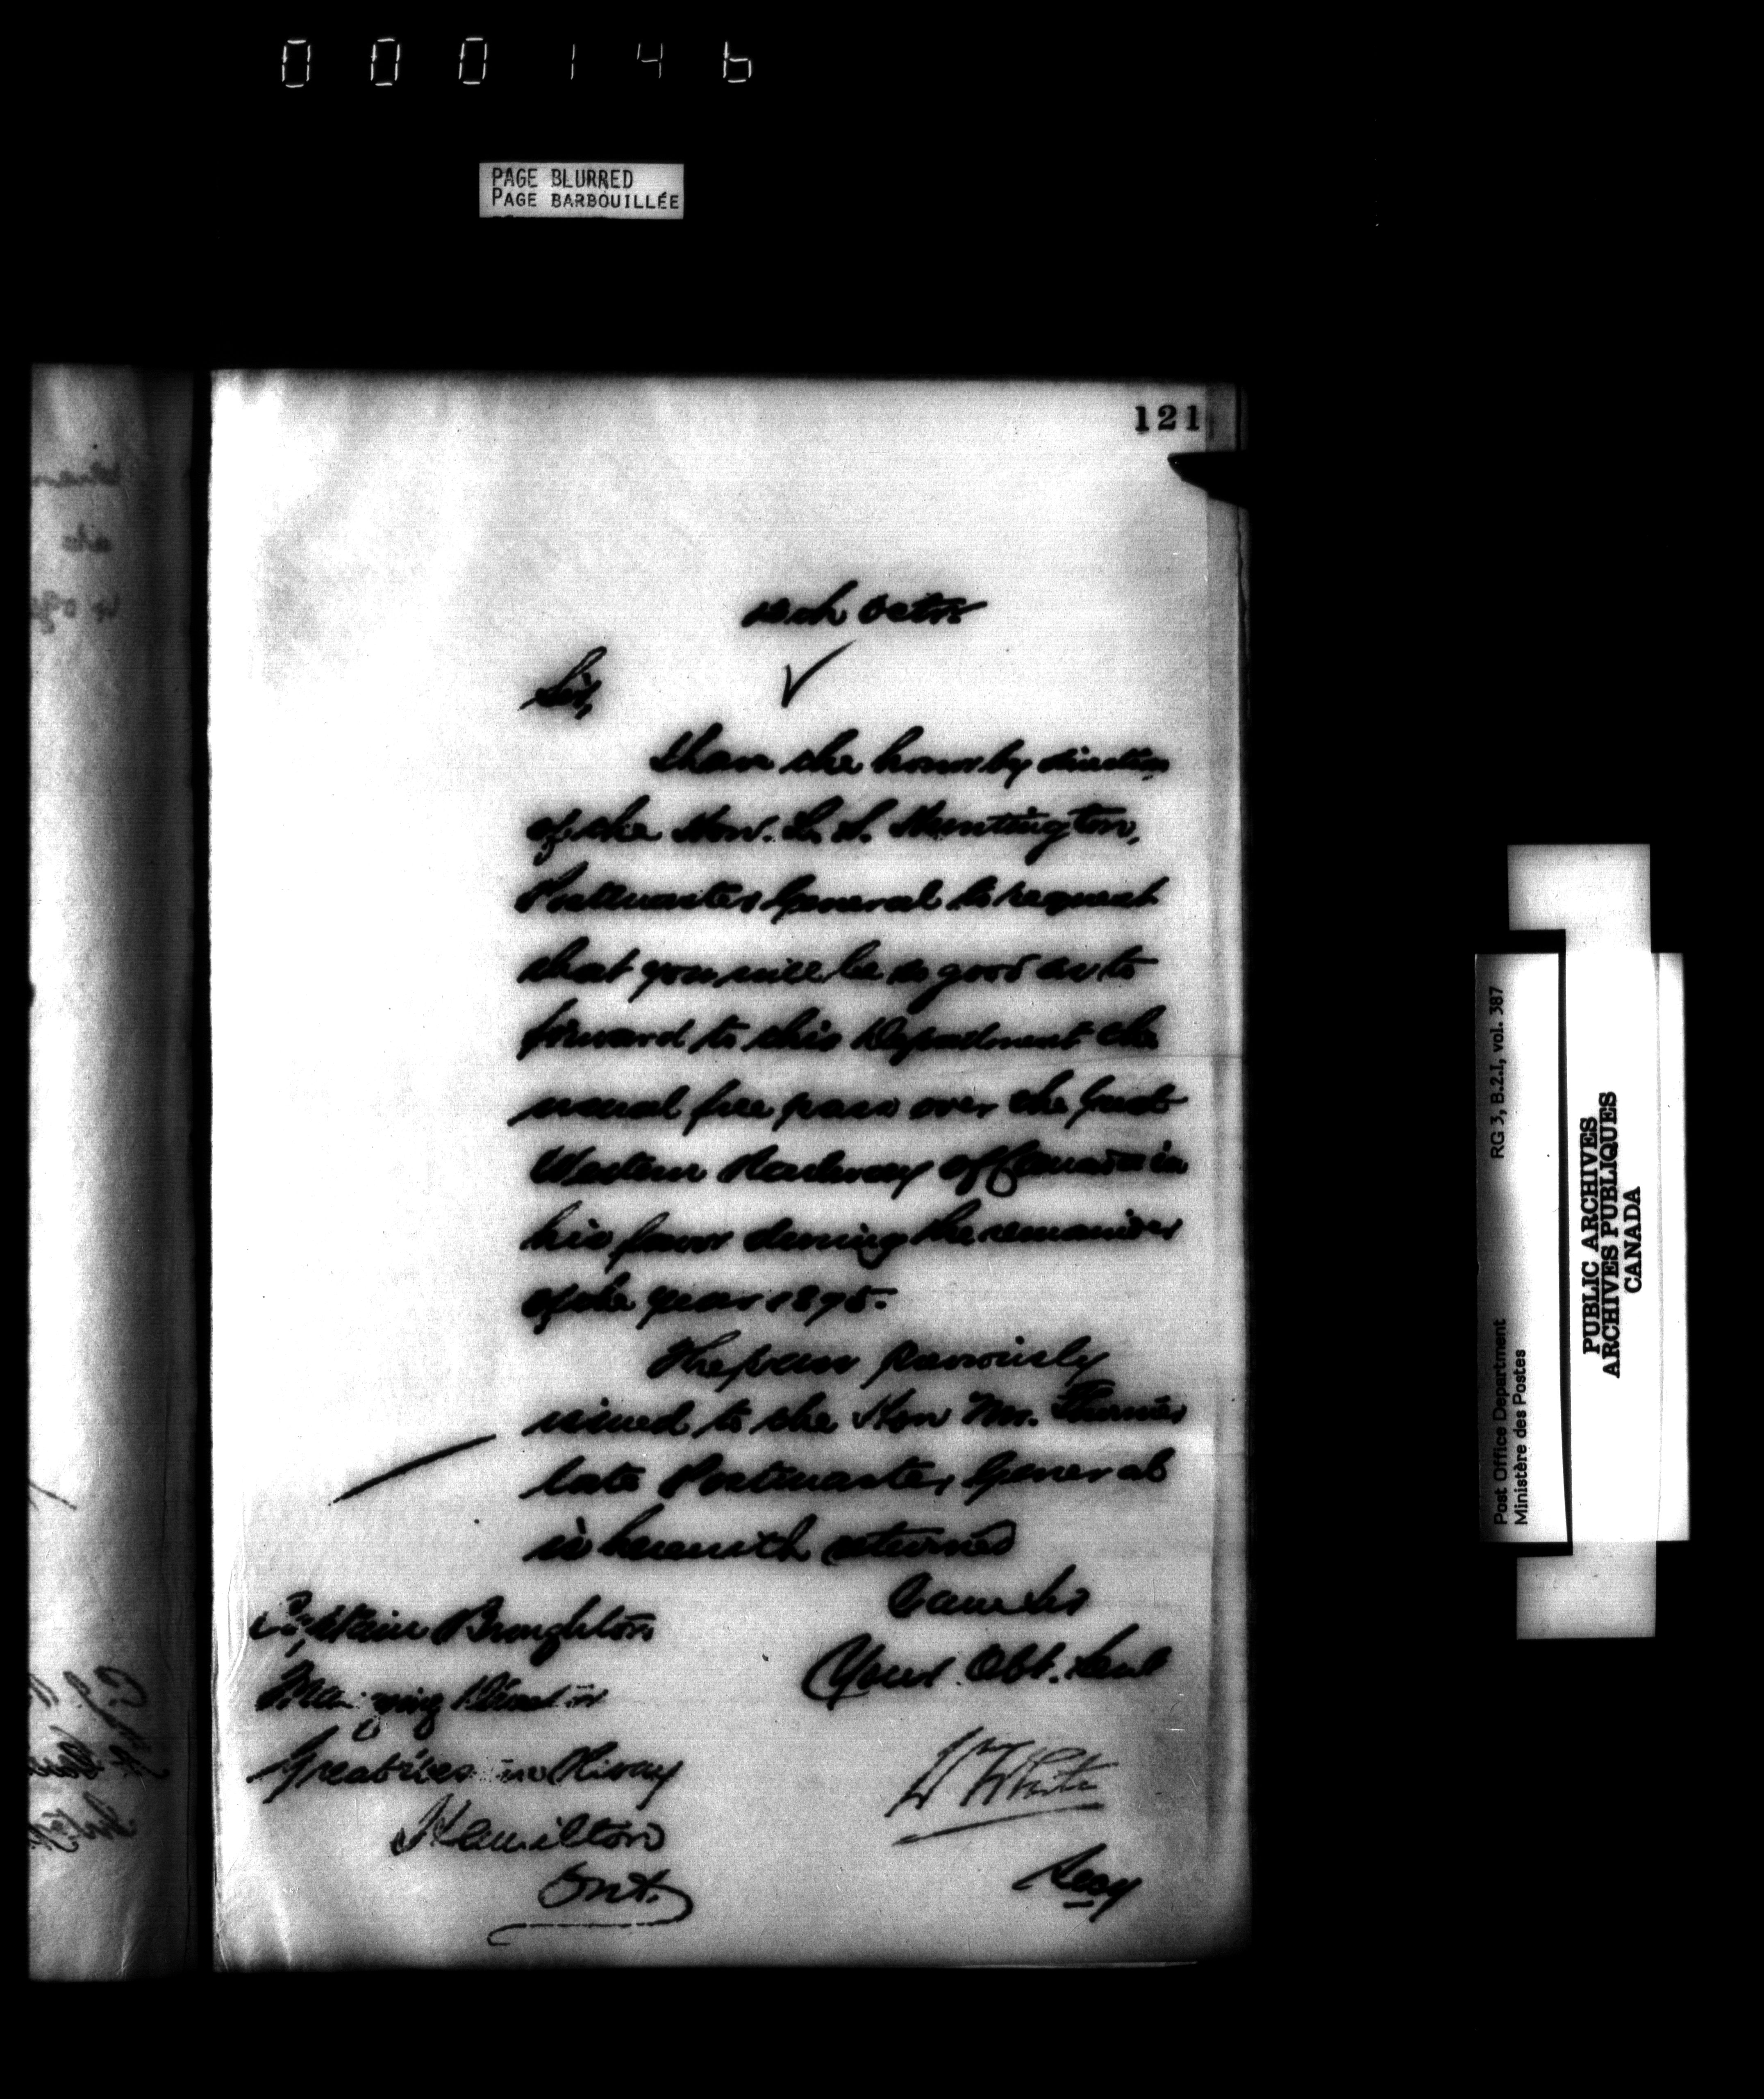 000146
PAGE BLURRED
PAGE BARBOUILLÉE
121
Octr
Sir,
I have the honor by direction
of the Hon. L. S. Huntington,
Postmaster General to request
that you will be so good as to
forward to this Department the
usual free pass over the Great
Western Railway of Canada in
his favor during the remainder
of the year 1875.
The pass previously
issued to the Hon Mr. Fournier
late Postmaster General
is herewith returned
I am Sir
Your Obt. Servt
W White
Secy
Captain Broughton
Managing Director
Great Western Rlway
Hamilton
Ont.
Post Office Department
Ministère des Postes
RG 3, B.2.I, vol. 387
PUBLIC ARCHIVES
ARCHIVES PUBLIQUES
CANADA